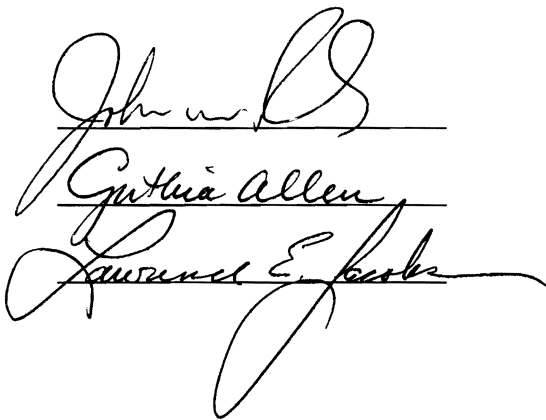 John
Cynthia Allen
Lawrence E. Jacobs